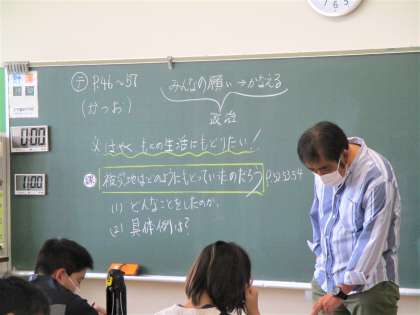 ㋢ P.46～51
(かつお)
みんなの願い→かなえる
政治
はやくもとの生活にもどりたい!
課 被災地はどのようにもどっていったのだろう P.52,53,54
(1) どんなことをしたのか。
(2) 具体例は?
00:00
11:00